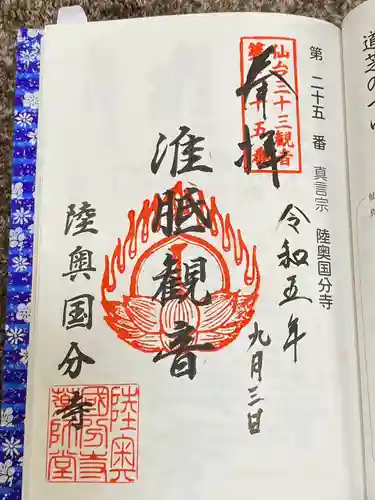 第二十五番 真言宗 陸奥国分寺
仙台三十三観音
第二十五番
奉拝
令和五年
九月三日
准胝観音
陸奥国分寺
陸奥
國分寺
薬師堂